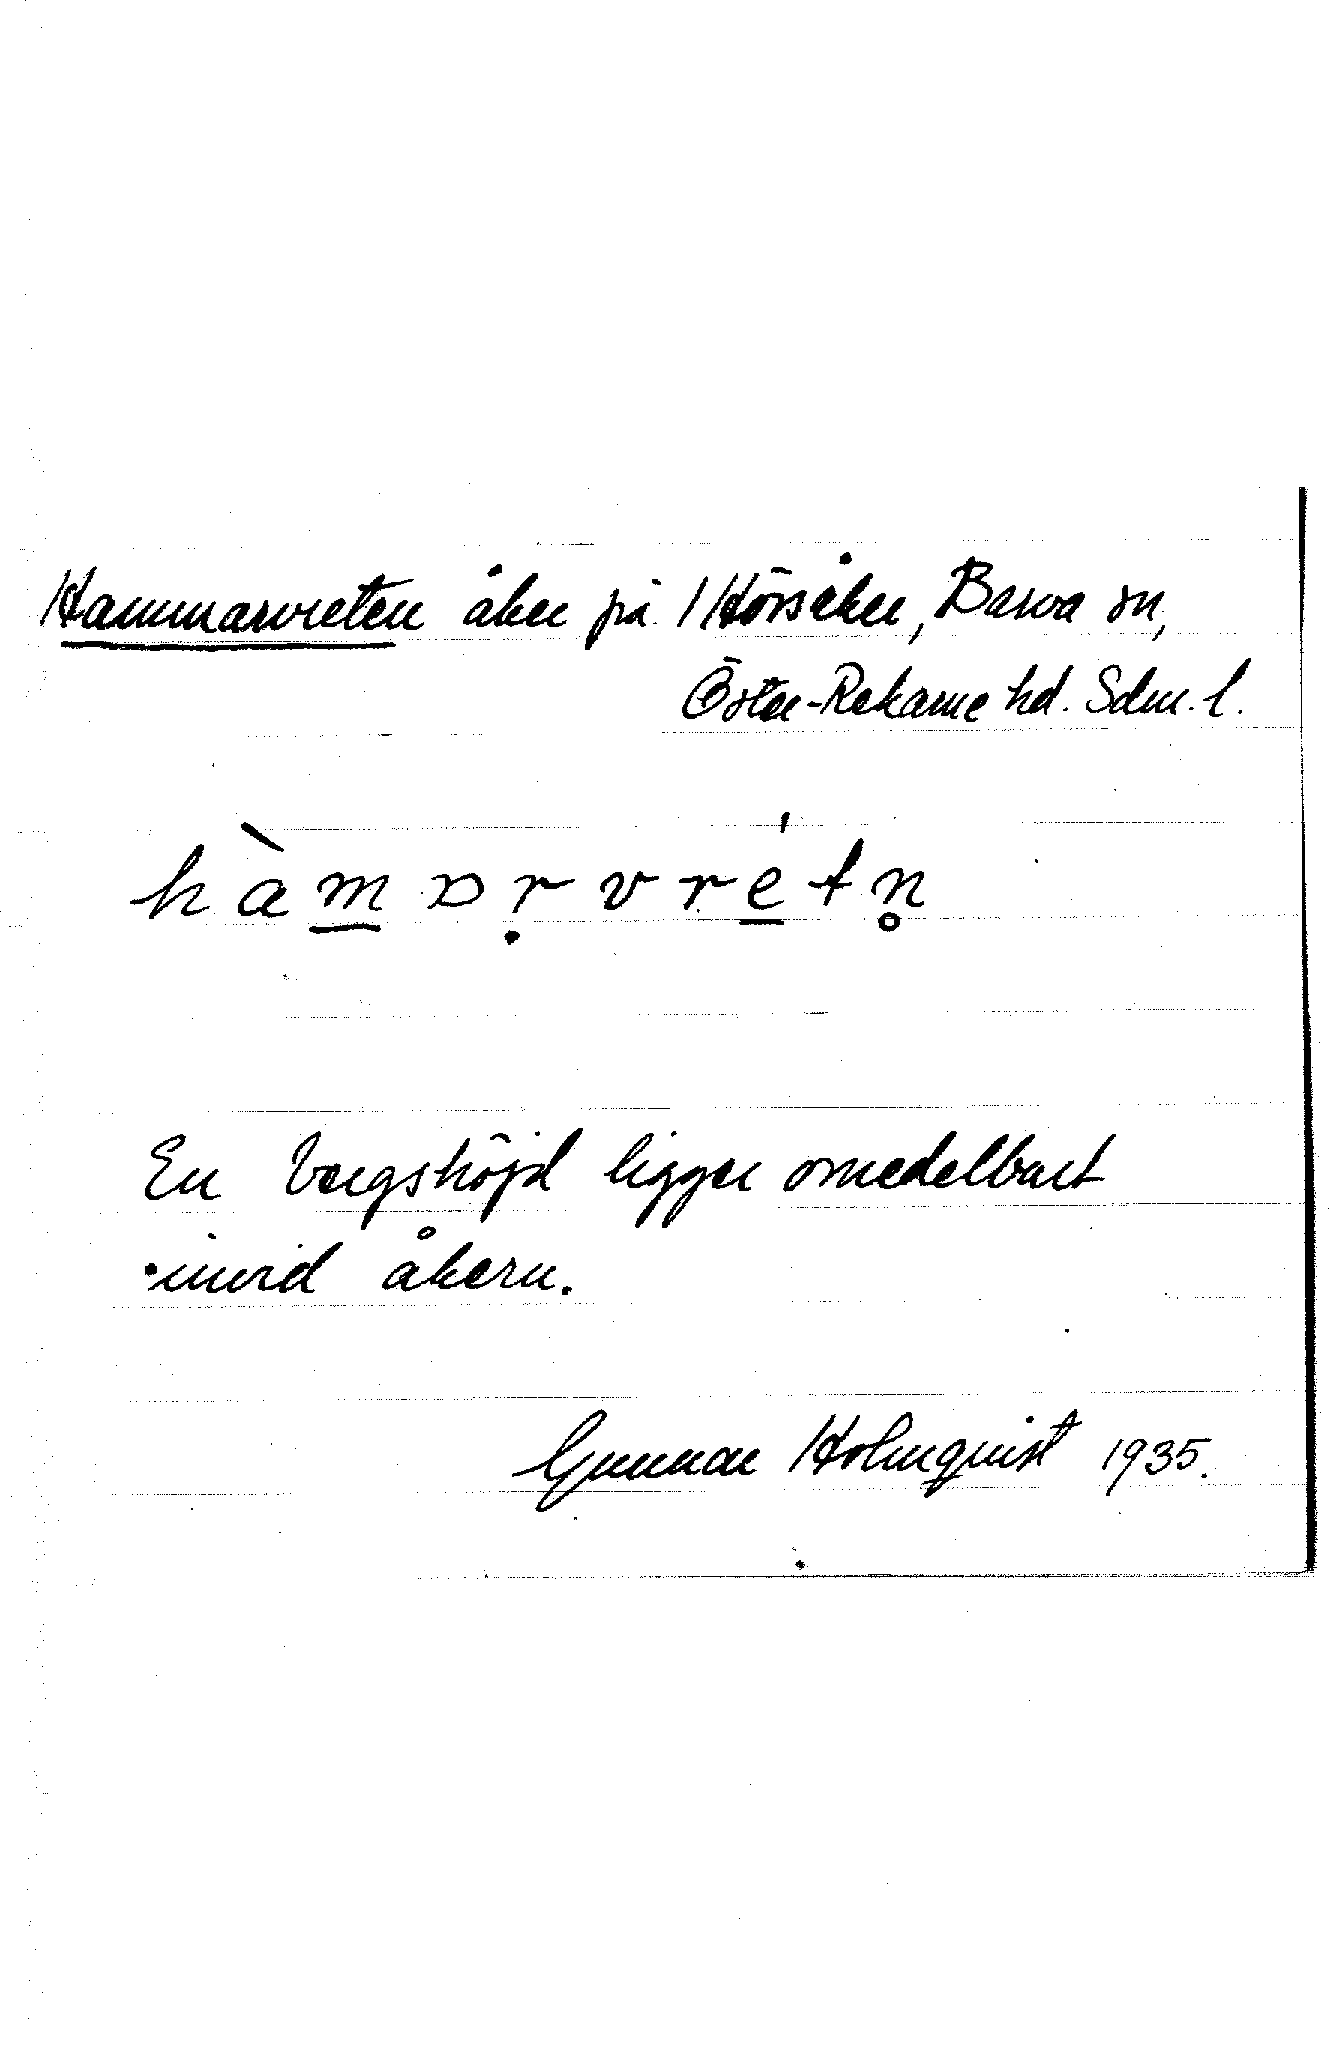 Hammarvreten åker på Hörsåker, Barva sn,
Öster-Rekarne hd. Sdm. l.
hàm̲ɑṛvré̲tn̥
En bergshöjd ligger omedelbart
invid åkern.
Gunnar Holmquist 1935.